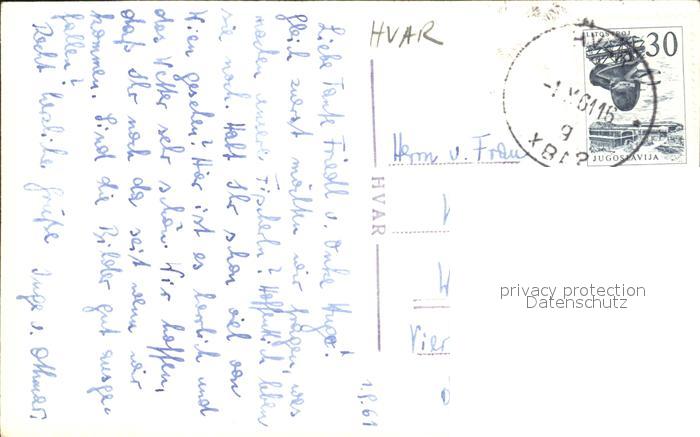 HVAR
LITOSTROJ
30
JUGOSLAVIJA
HVAR
Herrn u. Frau
Vier
privacy protection
Datenschutz
1.9.61
Liebe Tante Friedl u. Onkel Hugo!
Gleich zuerst möchten wir fragen, was
machen unsere Fischerln? Hoffentlich leben
sie noch. Habt Ihr schon viel von
Wien gesehen? Hier ist es herrlich und
das Wetter sehr schön. Wir hoffen,
daß Ihr noch da seit wenn wir
kommen. Sind die Bilder gut ausge-
fallen?
Recht herzliche Grüße Inge u. Othmar